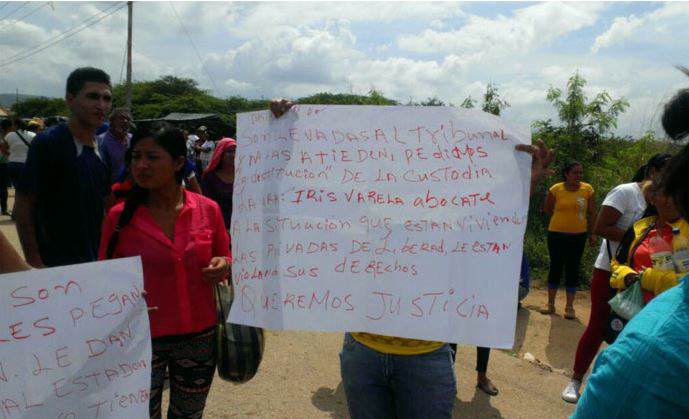 SON LLEVADAS AL TRIBUNAL
Y NI LAS ATIEDEN, PEDIMOS
LA DESTITUCION" DE LA CUSTODIA
IRIS VARELA ABOCATE
A LA SITUACION QUE ESTAN VIVIENDO
PRIVADAS DE LIBERAD, LE ESTAN
SUS DERECHOS
QUEREMOS JUSTICIA
SON
LES PEGAN
LE DAN
AL ESTADO
TIENEN